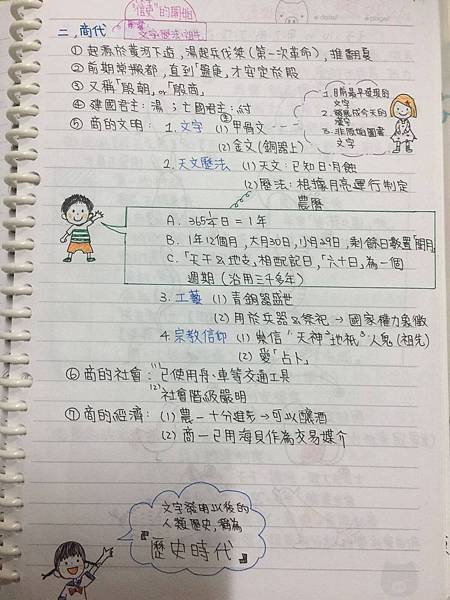 "信史"的開始
文字、曆法、銅
二、商代
①起源於黃河下游,湯起兵伐桀(第一次革命),推翻夏
②前期常搬都,直到「盤庚」才安定於殷
③又稱「殷朝」or「殷商」
④建國君主:湯 ; 亡國君主:紂
⑤商的文明: 1.文字 (1)甲骨文
(2)金文(銅器上)
1.目前最早發現的文字
2.發展成今天的漢字
3.非原始圖畫文字
2.天文曆法 (1)天文:已知日、月蝕
(2)曆法:根據月亮運行制定
農曆
A. 365¼日=1年
B. 1年12個月,大月30日,小月29日,剩餘日數置「閏月」
C.「天干」&「地支」相配記日,「六十日」為一個
週期(沿用三千多年)
3.工藝 (1)青銅器盛世
(2)用於兵器&祭祀→國家權力象徵
4.宗教信仰 (1)崇信"天神"地祇"人鬼(祖先)
(2)愛「占卜」
⑥商的社會:(1)已使用舟、車等交通工具
(2)社會階級嚴明
⑦商的經濟: (1)農一十分進步→可以釀酒
(2)商一已用海貝作為交易媒介
文字發明以後的
人類歷史,稱為
『歷史時代』